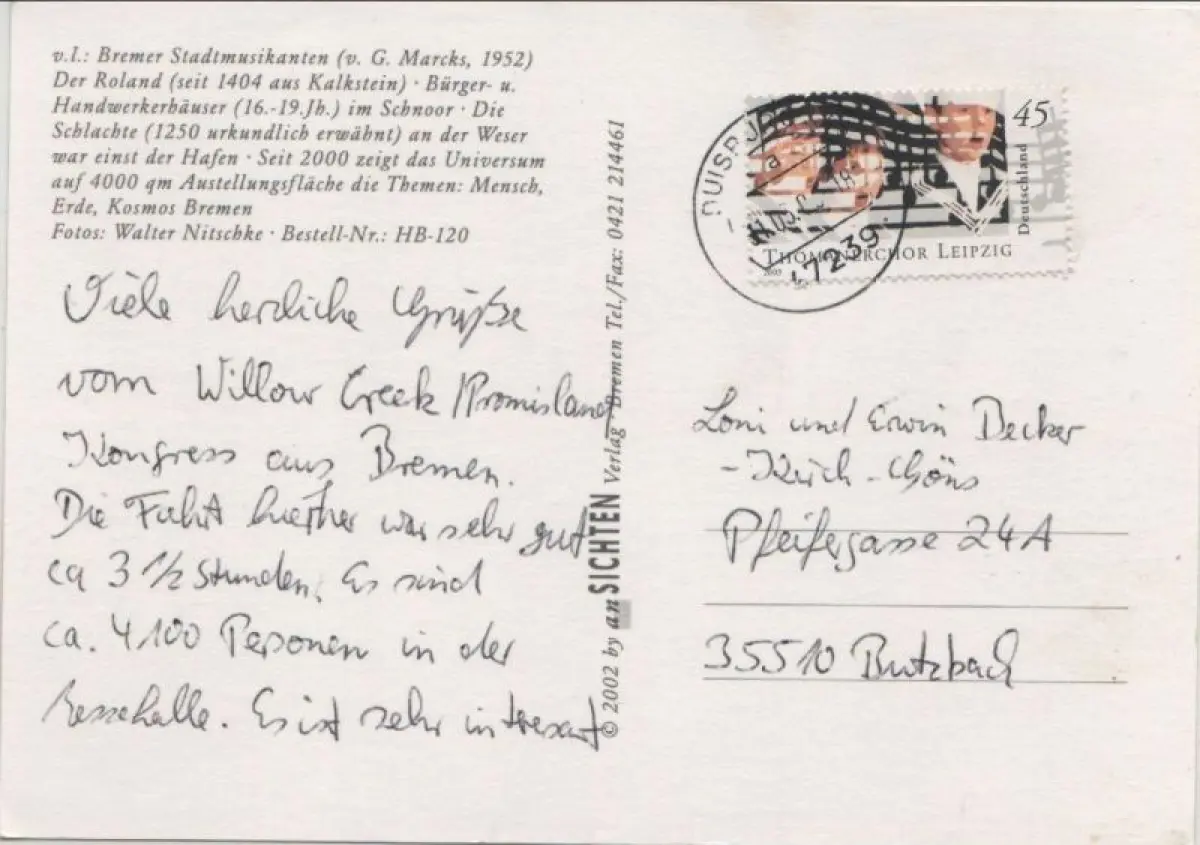 v.l.: Bremer Stadtmusikanten (v. G. Marcks, 1952)
Der Roland (seit 1404 aus Kalkstein) · Bürger- u.
Handwerkerhäuser (16.-19.Jh.) im Schnoor · Die
Schlachte (1250 urkundlich erwähnt) an der Weser
war einst der Hafen · Seit 2000 zeigt das Universum
auf 4000 qm Austellungsfläche die Themen: Mensch,
Erde, Kosmos Bremen
Fotos: Walter Nitschke · Bestell-Nr.: HB-120
Viele herzliche Grüße
vom Willow Creek / Promisland
Kongress aus Bremen.
Die Fahrt hierher war sehr gut
ca 3 1/2 Stunden. Es sind
ca. 4100 Personen in der
Messehalle. Es ist sehr intresant
© 2002 by anSICHTEN Verlag Bremen Tel./Fax: 0421 2144461
45
Deutschland
THOMANERCHOR LEIPZIG
DUISBURG
47239
Loni und Erwin Decker
-Kirch-Göns
Pfeifergasse 24A
35510 Butzbach